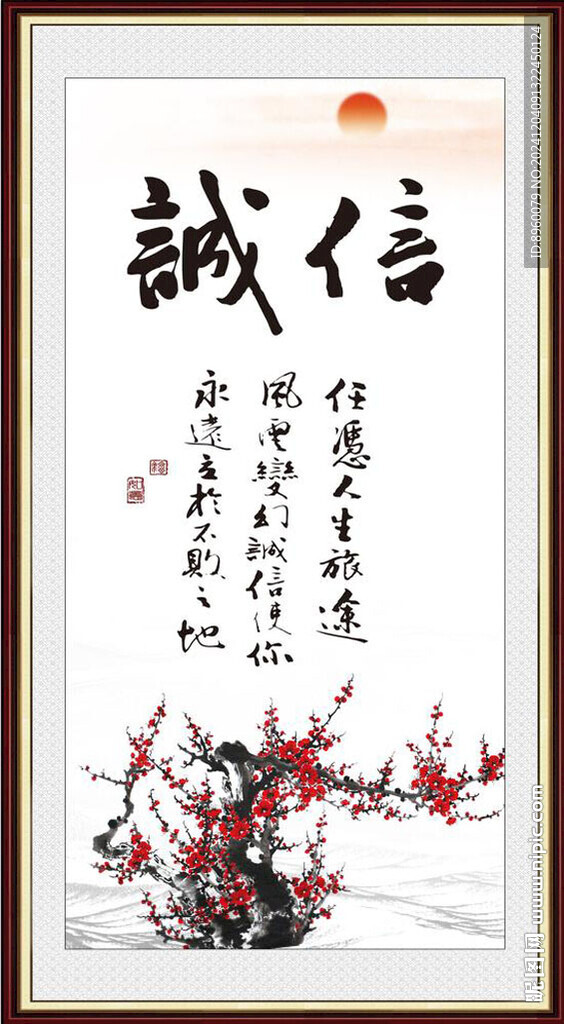 誠信
任憑人生旅途
風雲變幻誠信使你
永遠立於不敗之地
ID:8960079 NO:20241204091322450124
昵图网 www.nipic.com